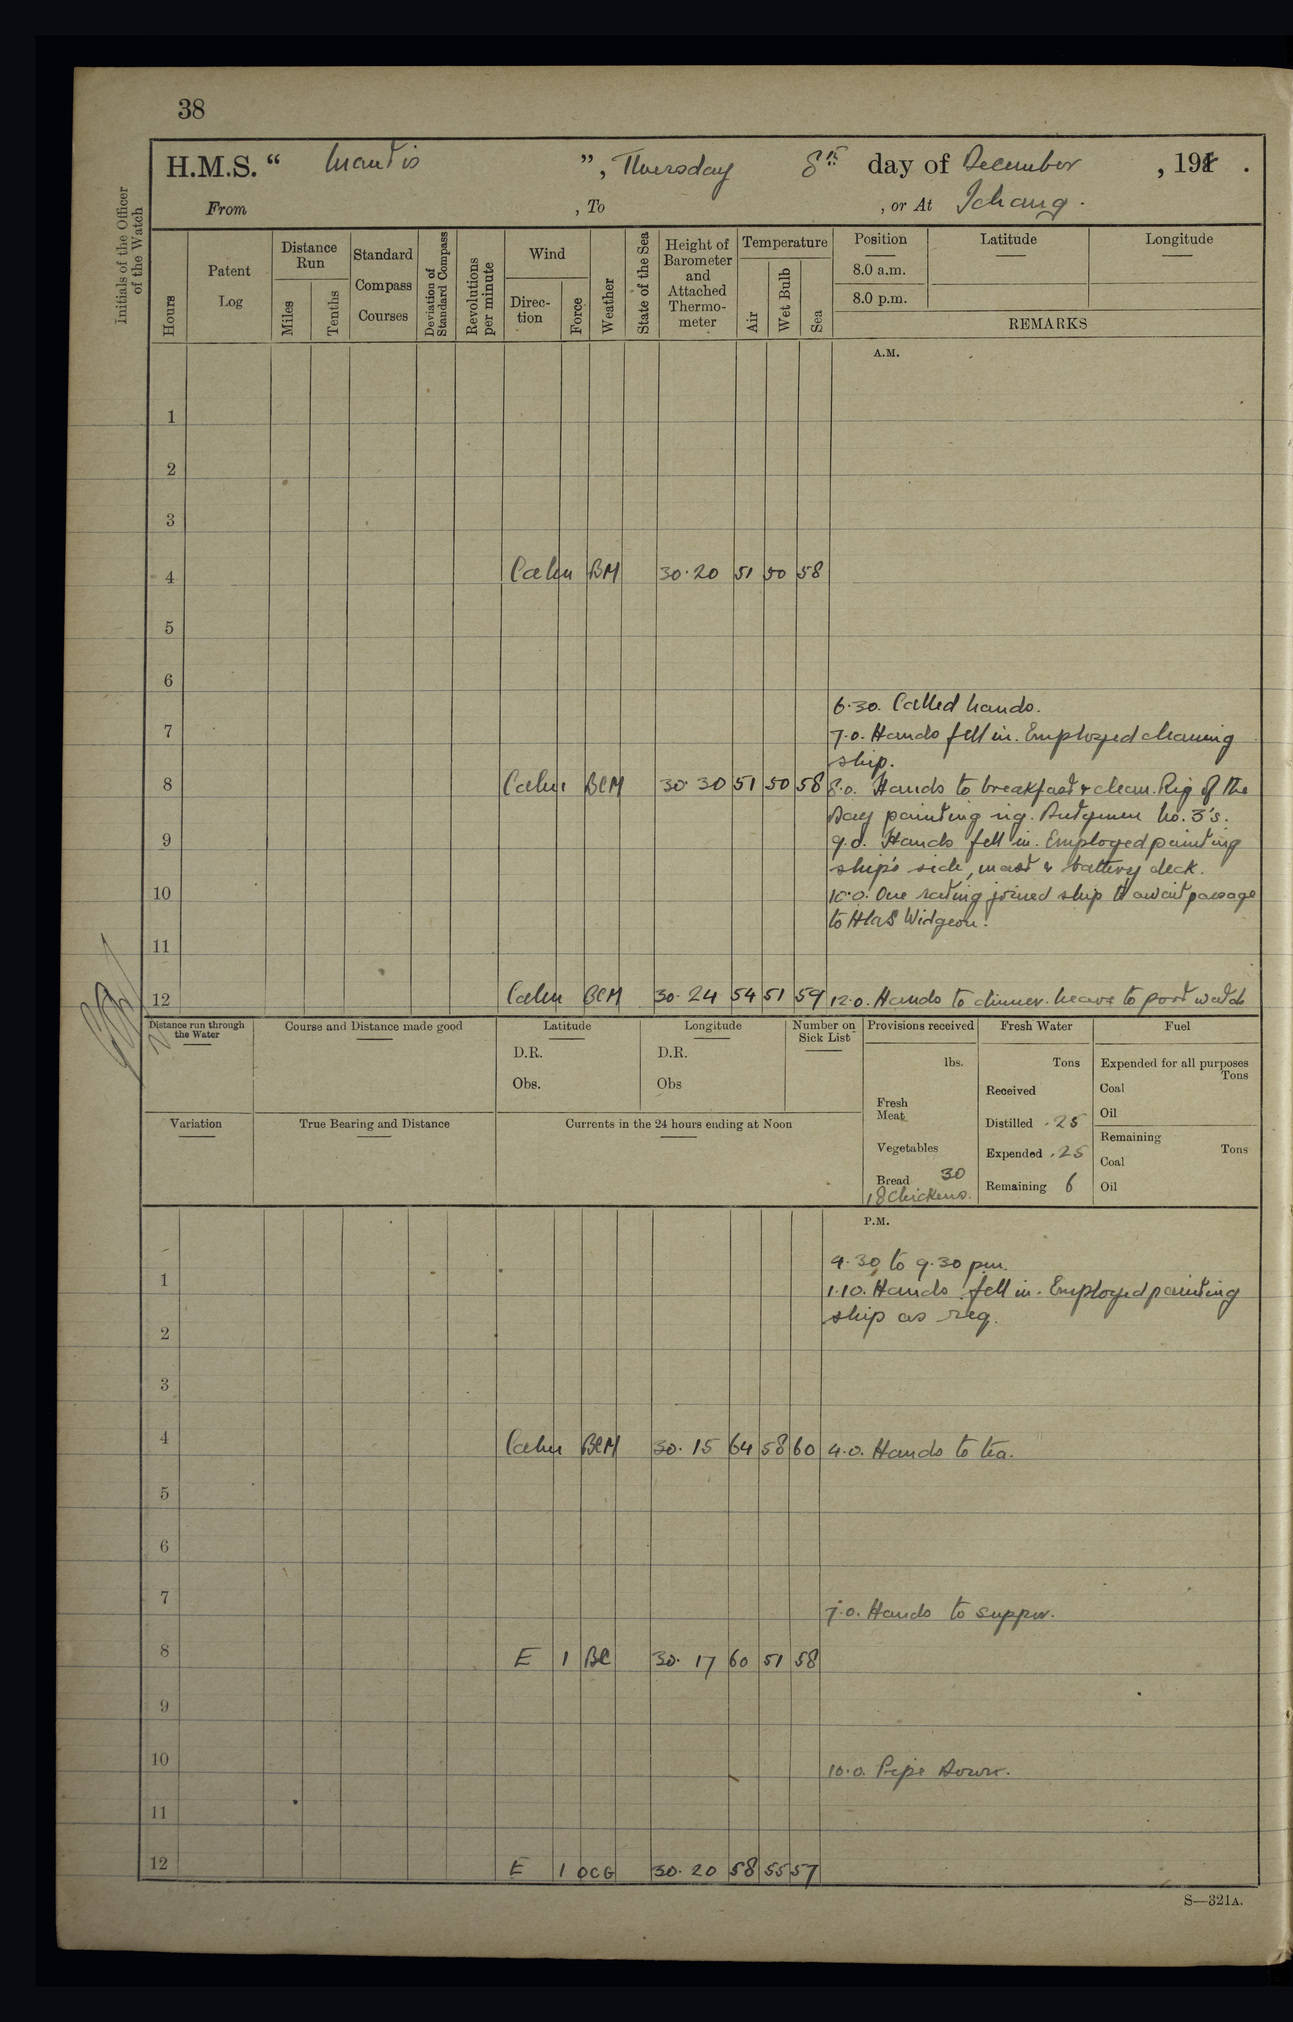 38
H.M.S. “ Mantis ”, Thursday 8th day of December , 191 .
From , To , or At Ichang.
Initials of the Officer of the Watch
Hours
Patent Log
Distance Run
Miles
Tenths
Standard Compass Courses
Deviation of Standard Compass
Revolutions per minute
Wind
Direction
Force
Weather
State of the Sea
Height of Barometer and Attached Thermometer
Temperature
Air
Wet Bulb
Sea
Position
8.0 a.m.
8.0 p.m.
Latitude
Longitude
REMARKS
A.M.
1
2
3
4 Calm BM 30.20 51 50 58
5
6
6.30. Called hands.
7 7.0. Hands fell in. Employed cleaning
ship.
8 Calm BCM 30 30 51 50 58 8.0. Hands to breakfast & clean. Rig of the
Day painting rig. Dutymen No. 3's.
9 9.0. Hands fell in. Employed painting
ship's side, mast & battery deck.
10 10.0. One rating joined ship to await passage
to HMS Widgeon.
11
12 Calm BCM 30.24 54 51 59 12.0. Hands to dinner. leave to port watch
Distance run through the Water
Course and Distance made good
Latitude
D.R.
Obs.
Longitude
D.R.
Obs
Number on Sick List
Provisions received
lbs.
Fresh Meat
Vegetables
Bread 30
18 Chickens.
Fresh Water
Tons
Received
Distilled .25
Expended .25
Remaining 6
Fuel
Expended for all purposes
Tons
Coal
Oil
Remaining
Tons
Coal
Oil
Variation
True Bearing and Distance
Currents in the 24 hours ending at Noon
P.M.
4.30 to 9.30 pm.
1 1.10. Hands fell in. Employed painting
ship as req.
2
3
4 Calm BCM 30.15 64 58 60 4.0. Hands to tea.
5
6
7 7.0. Hands to supper.
8 E 1 BC 30.17 60 51 58
9
10 10.0. Pipe Down.
11
12 E 1 OCG 30.20 58 55 57
S—321A.